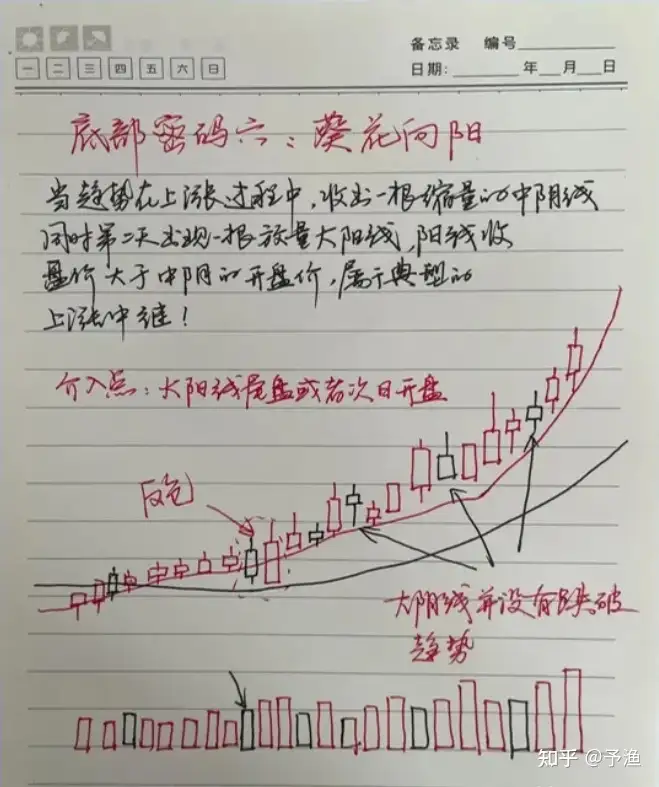 备忘录 编号
一 二 三 四 五 六 日
日期: 年 月 日
底部密码六：葵花向阳
当趋势在上涨过程中，收出一根缩量的中阴线
同时第二天出现一根放量大阳线，阳线收
盘价大于中阴的开盘价，属于典型的
上涨中继！
介入点：大阳线尾盘或者次日开盘
反包
大阴线并没有跌破
趋势
知乎 @予渔